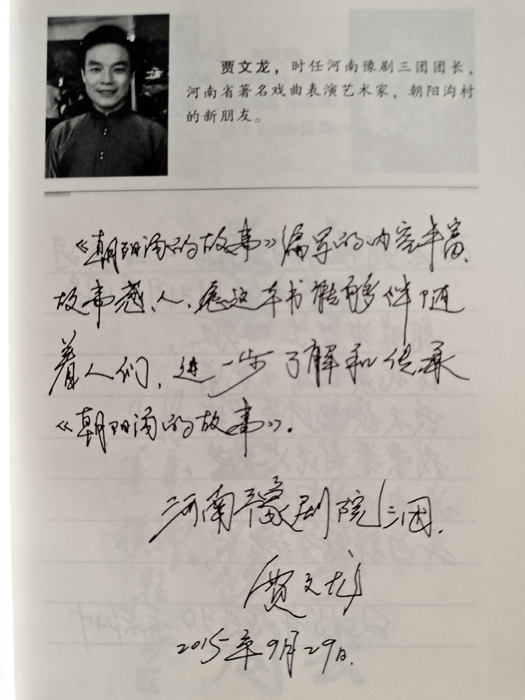 贾文龙，时任河南豫剧三团团长，
河南省著名戏曲表演艺术家，朝阳沟村
的新朋友。
《朝阳沟的故事》编写的内容丰富，
故事感人，愿这本书能够伴随
着人们，进一步了解和传承
《朝阳沟的故事》。
河南豫剧院三团.
贾文龙
2015年9月29日.